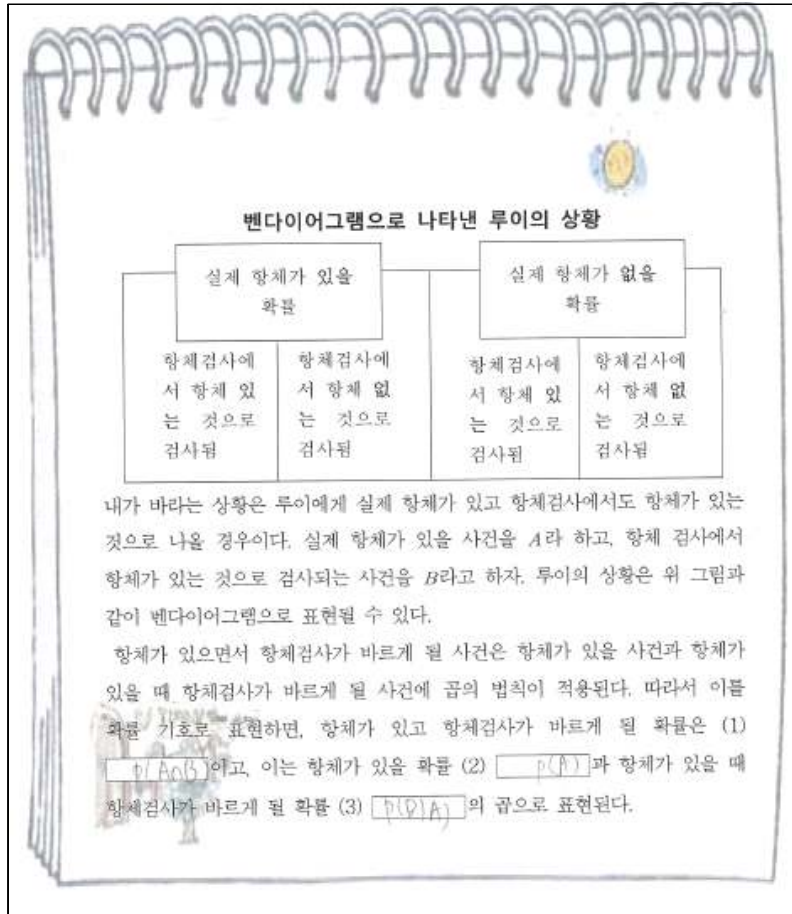 벤다이어그램으로 나타낸 루이의 상황
실제 항체가 있을
확률
실제 항체가 없을
확률
항체검사에
서 항체 있
는 것으로
검사됨
항체검사에
서 항체 없
는 것으로
검사됨
항체검사에
서 항체 있
는 것으로
검사됨
항체검사에
서 항체 없
는 것으로
검사됨
내가 바라는 상황은 루이에게 실제 항체가 있고 항체검사에서도 항체가 있는
것으로 나올 경우이다. 실제 항체가 있을 사건을 A라 하고, 항체 검사에서
항체가 있는 것으로 검사되는 사건을 B라고 하자. 루이의 상황은 위 그림과
같이 벤다이어그램으로 표현될 수 있다.
항체가 있으면서 항체검사가 바르게 될 사건은 항체가 있을 사건과 항체가
있을 때 항체검사가 바르게 될 사건에 곱의 법칙이 적용된다. 따라서 이를
확률 기호로 표현하면, 항체가 있고 항체검사가 바르게 될 확률은 (1)
p(A∩B) 이고, 이는 항체가 있을 확률 (2) p(A) 과 항체가 있을 때
항체검사가 바르게 될 확률 (3) p(B|A) 의 곱으로 표현된다.